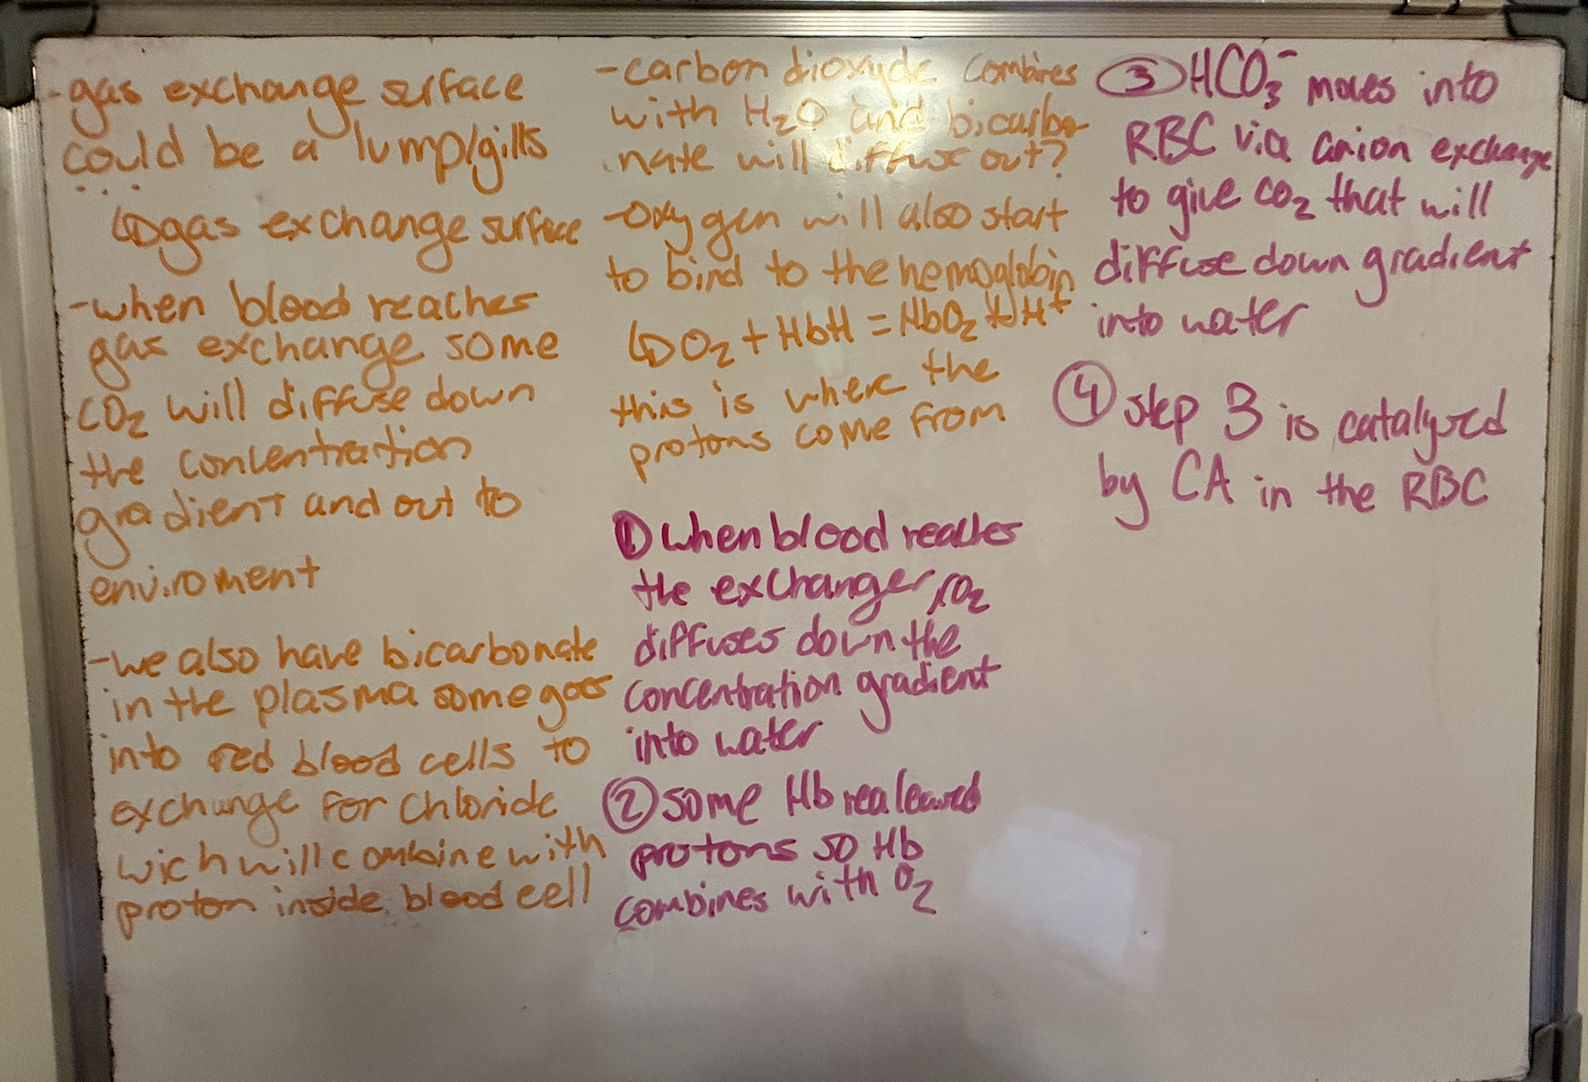 -gas exchange surface
could be a lump/gills
...
↳gas exchange surface
-when blood reaches
gas exchange some
CO₂ will diffuse down
the concentration
gradient and out to
enviroment
-we also have bicarbonate
in the plasma some goes
into red blood cells to
exchange for chloride
wich will combine with
proton inside blood cell
-carbon dioxyde combines
with H₂O and bicarbo-
nate will diffuse out?
-oxygen will also start
to bind to the hemoglobin
↳O₂ + HbH = HbO₂ + H⁺
this is where the
protons come from
① when blood reaches
the exchanger, CO₂
diffuses down the
concentration gradient
into water
② some Hb realeased
protons so Hb
combines with O₂
③ HCO₃⁻ moves into
RBC via anion exchange
to give CO₂ that will
diffuse down gradient
into water
④ step 3 is catalyzed
by CA in the RBC